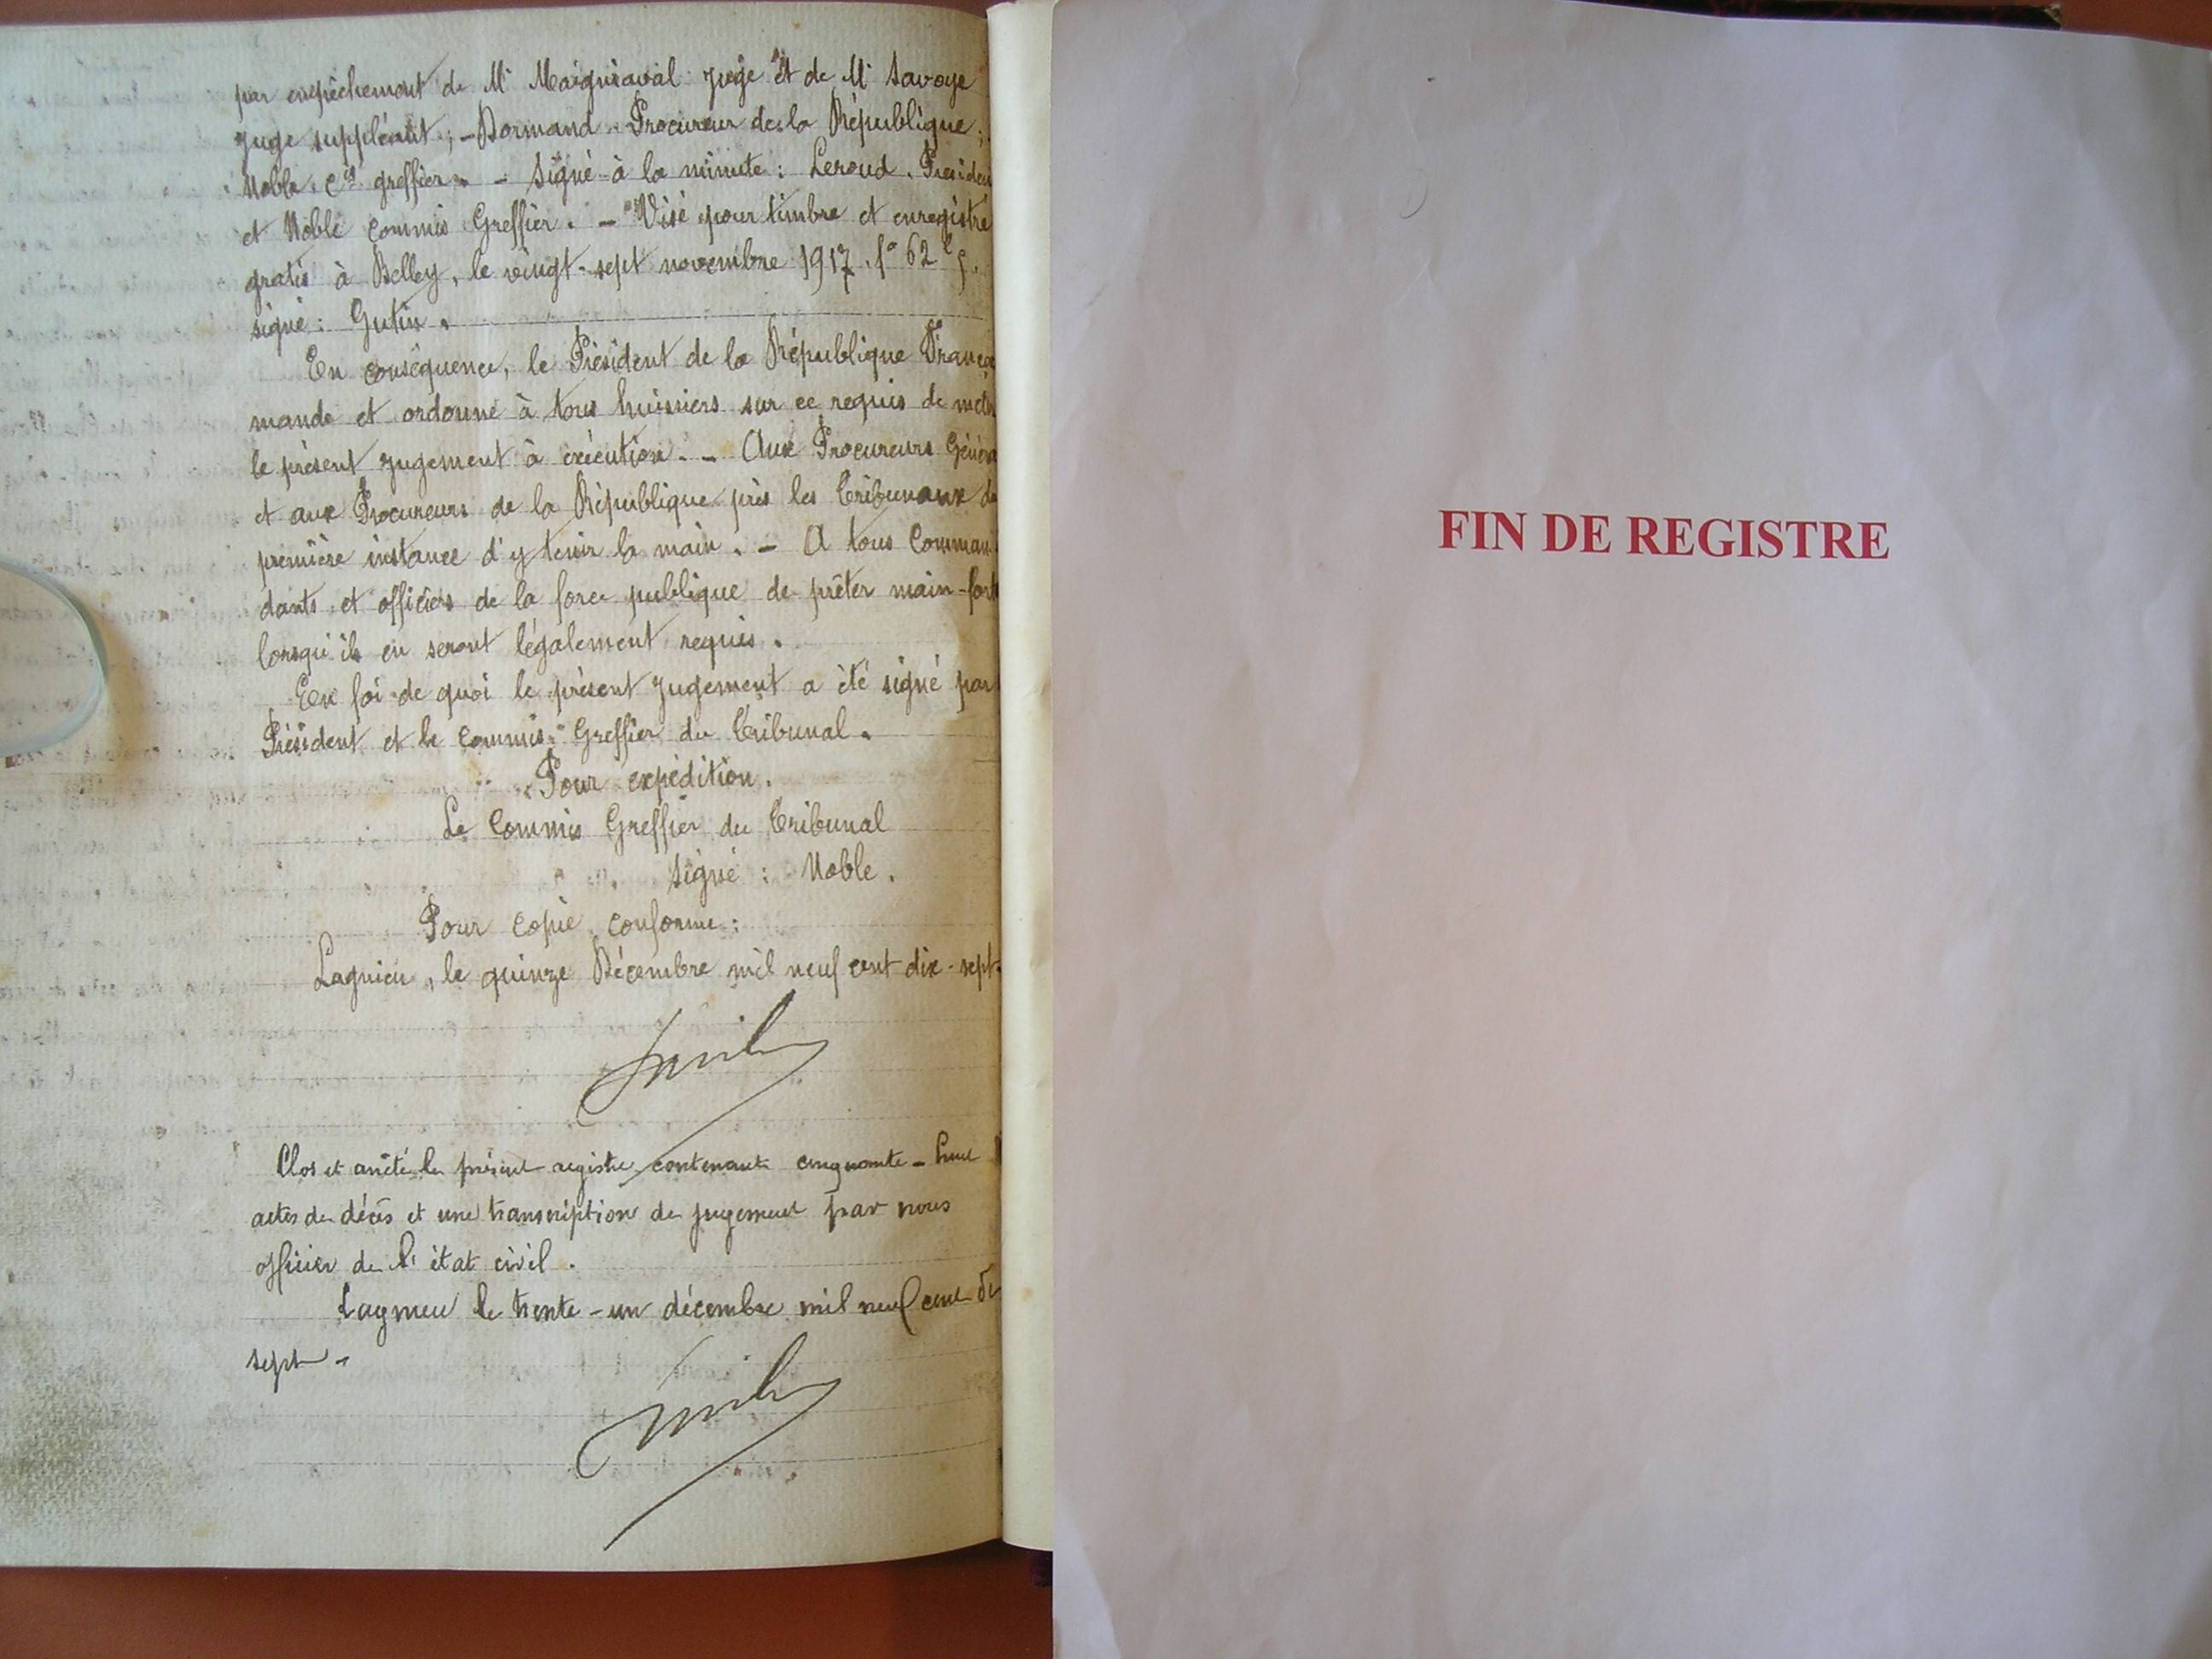 par empêchement de Mr Maigniaval juge et de Mr Savoye
juge suppléant ; – Dormand Procureur de la République ;
Noble, cis greffier. – Signé à la minute : Leroud, Présiden
et Noble commis Greffier. – Visé pour timbre et enregistré
gratis à Belley, le vingt-sept novembre 1917. fo 62
signé : Gutin.
En conséquence, le Président de la République França
mande et ordonne à tous huissiers sur ce requis de mettr
le présent jugement à exécution. – Aux Procureurs Généra
et aux Procureurs de la République près les Tribunaux de
première instance d'y tenir la main. – A tous Comman-
dants et officiers de la force publique de prêter main-fort
lorsqu'ils en seront légalement requis.
En foi de quoi le présent jugement a été signé par
Président et le Commis Greffier du Tribunal.
Pour expédition.
Le Commis Greffier du Tribunal
Signé : Noble.
Pour copie conforme :
Lagnieu, le quinze Décembre mil neuf cent dix-sept.
Clos et arrêté le présent registre contenant cinquante-huit
actes de décès et une transcription de jugement par nous
officier de l'état civil.
Lagnieu le trente-un décembre mil neuf cent di
sept –
FIN DE REGISTRE